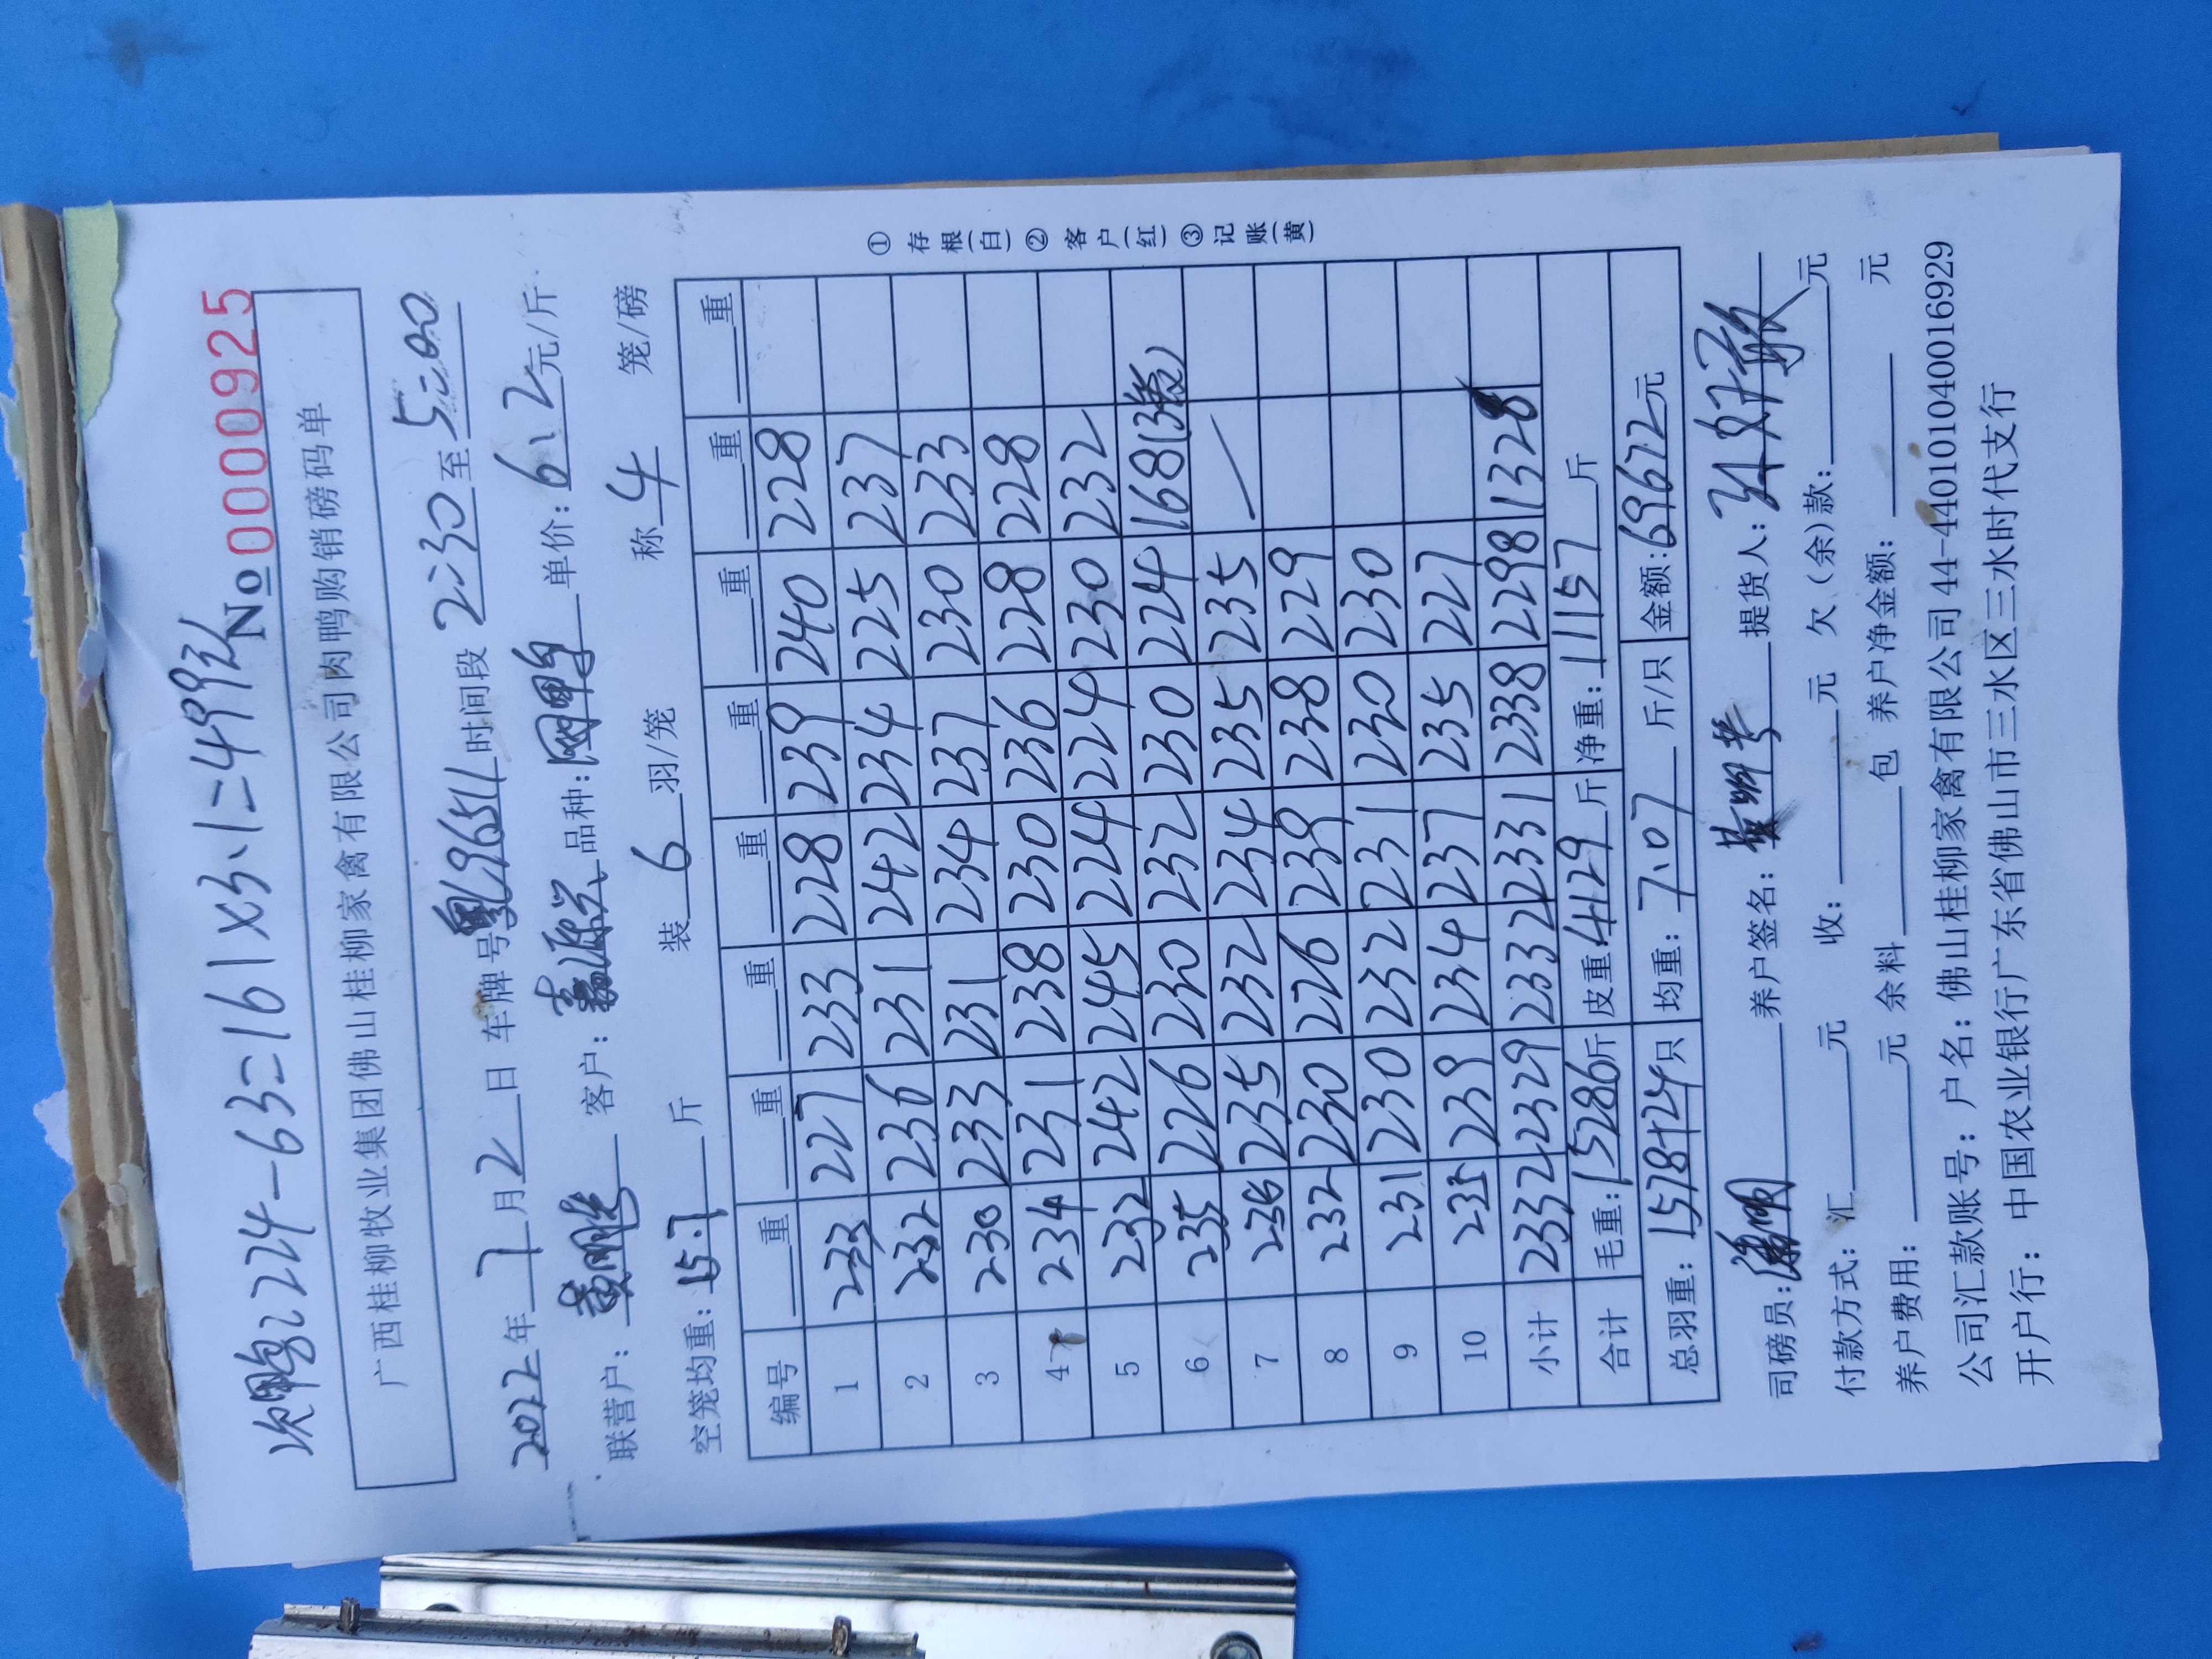 次鸭224-63=161×3.1=499元
№0000925
广西桂柳牧业集团佛山桂柳家禽有限公司肉鸭购销磅码单
2022年7月2日 车牌号 时间段2:30至5:00
联营户: 客户: 品种: 单价:6.2元/斤
空笼均重:15.7斤 装6羽/笼 称4笼/磅
编号 重 重 重 重 重 重 重 重
1 233 227 233 228 239 240 228
2 232 236 231 242 234 225 237
3 230 233 231 234 237 230 233
4 234 231 238 230 236 228 228
5 232 242 245 224 224 230 232
6 235 226 230 232 230 224 168(3笼)
7 238 235 232 234 235 235
8 232 230 226 239 238 229
9 231 230 232 231 230 230
10 235 239 234 237 235 227
小计 2332 2329 2332 2331 2338 2298 1328
合计 毛重:15286斤 皮重:4129斤 净重:11157斤
总羽重:1578+24只 均重:7.07斤/只 金额:69672元
司磅员: 养户签名: 提货人:
付款方式:汇 元 收: 元 欠(余)款: 元
养户费用: 元 余料 包 养户净金额: 元
公司汇款账号:户名:佛山桂柳家禽有限公司44-440101040016929
开户行:中国农业银行广东省佛山市三水区三水时代支行
①存根(白)②客户(红)③记账(黄)